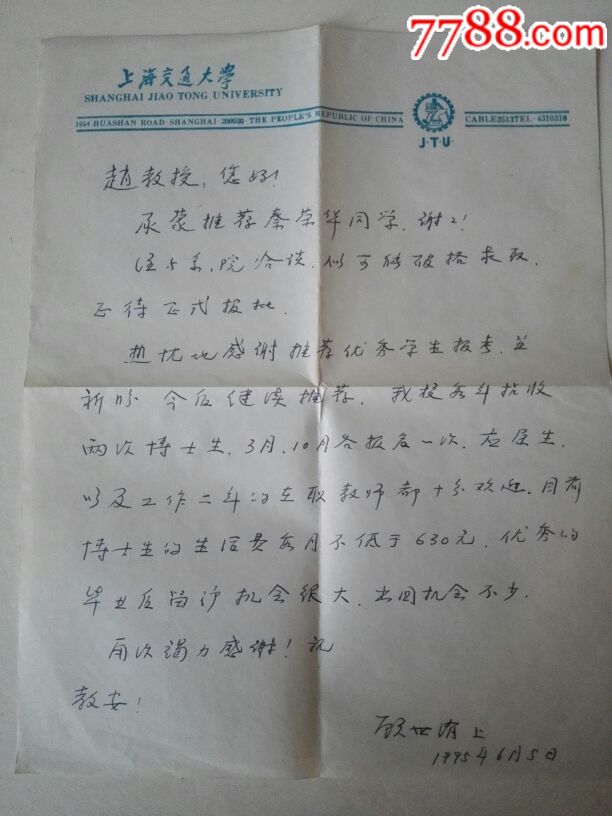 7788.com
上海交通大学
SHANGHAI JIAO TONG UNIVERSITY
1954 HUASHAN ROAD·SHANGHAI·200030·THE PEOPLE'S REPUBLIC OF CHINA
CABLE2513TEL·4310310
J·T·U·
赵教授，您好！
承蒙推荐秦荣华同学，谢々！
经与系、院洽谈，似可能破格录取，
正待正式报批。
热忱地感谢推荐优秀学生报考，并
祈盼今后继续推荐。我校每年招收
两次博士生，3月、10月各报名一次，应届生，
以及工作二年的在职教师都十分欢迎。目前
博士生的生活费每月不低于630元，优秀的
毕业后留沪机会很大，出国机会不少。
再次竭力感谢！祝
教安！
顾世 上
1995年6月5日